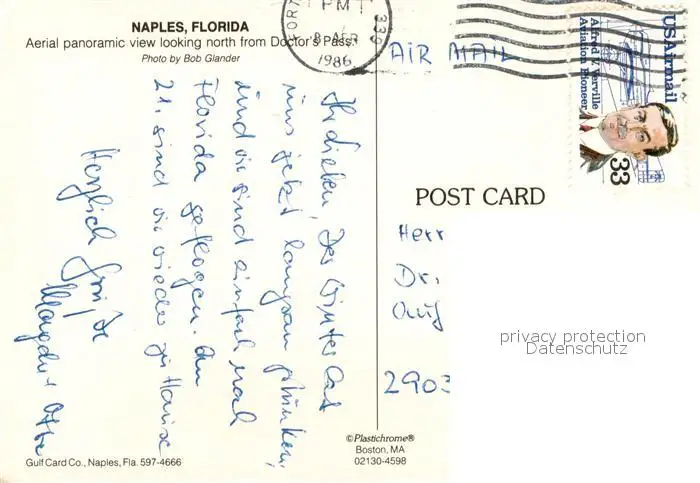 NAPLES, FLORIDA
Aerial panoramic view looking north from Doctor's Pass.
Photo by Bob Glander
PM
8 APR
1986
339
AIR MAIL
USAirmail
Alfred V. Verville
Aviation Pioneer
33
Ihr Lieben, Der Winter hat
uns jetzt langsam
und wir sind einfach nach
Florida geflogen. Am
21. sind wir wieder zu Hause
Herzlich
POST CARD
Herr
Dr.
2903
privacy protection
Datenschutz
©Plastichrome®
Boston, MA
02130-4598
Gulf Card Co., Naples, Fla. 597-4666